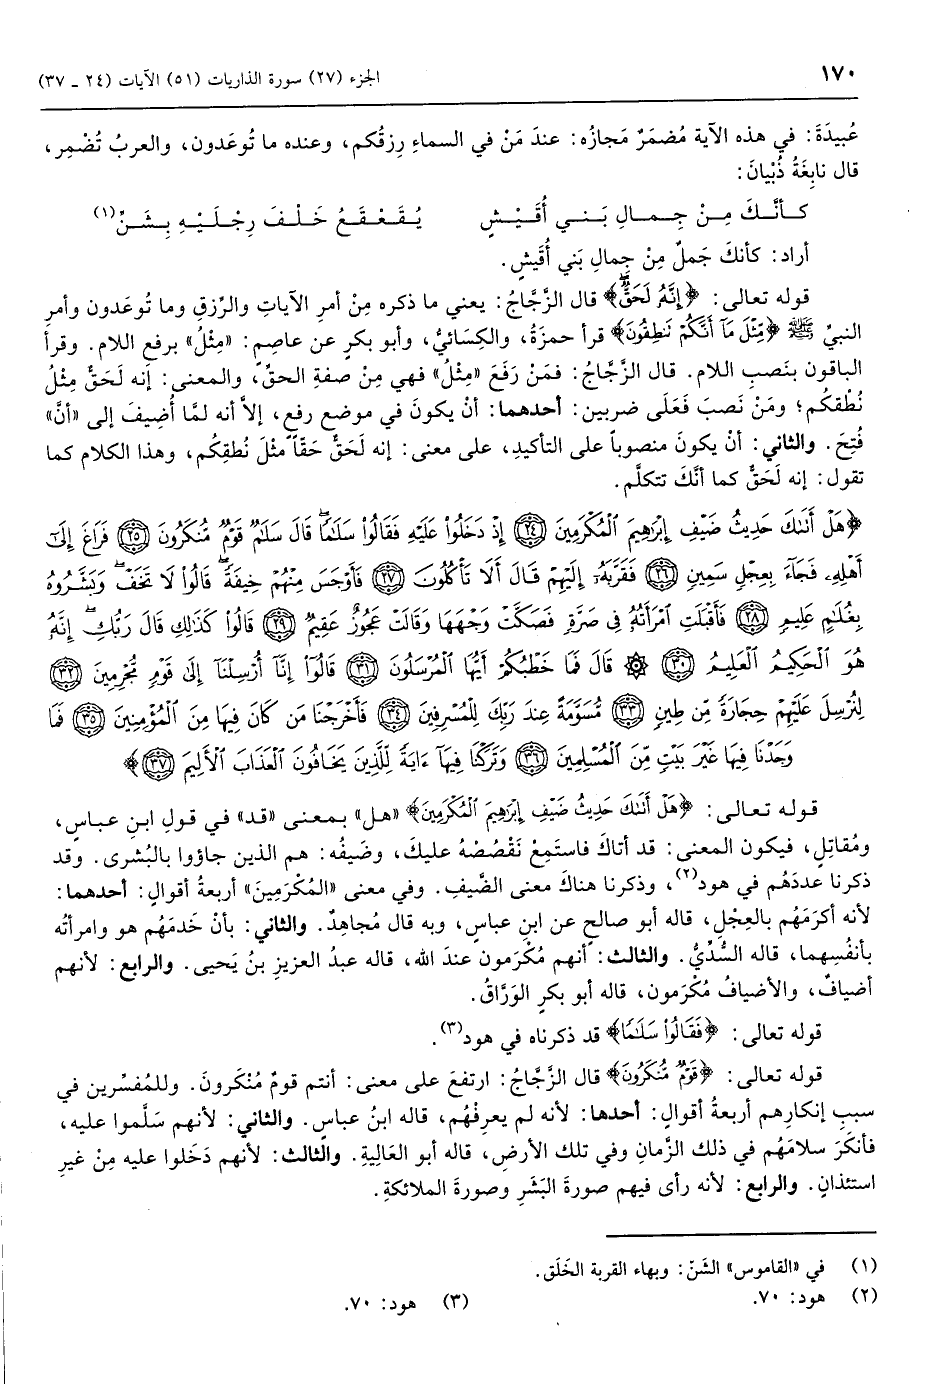 ١٧٠
الجزء (٢٧) سورة الذاريات (٥١) الآيات (٢٤ ـ ٣٧)
عُبيدَةَ: في هذه الآية مُضمَرٌ مَجازُه: عندَ مَنْ في السماءِ رِزقُكم، وعنده ما تُوعَدون، والعربُ تُضْمِر،
قال نابِغَةُ ذُبْيانَ:
كَأَنَّكَ مِنْ جِمالِ بَني أُقَيْشٍ يُقَعْقَعُ خَلْفَ رِجْلَيْهِ بِشَنِّ(١)
أراد: كأنكَ جَملٌ مِنْ جِمالِ بَني أُقَيشٍ.
قوله تعالى: ﴿إِنَّهُۥ لَحَقٌّ﴾ قال الزَّجّاجُ: يعني ما ذكره مِنْ أمرِ الآياتِ والرِّزقِ وما تُوعَدون وأمرِ
النبيِّ ﷺ ﴿مِّثْلَ مَآ أَنَّكُمْ نَنطِقُونَ﴾ قرأ حمزةُ، والكِسَائيُّ، وأبو بكرٍ عن عاصمٍ: «مِثْلُ» برفع اللام. وقرأ
الباقون بنَصبِ اللام. قال الزَّجّاجُ: فمَنْ رَفَعَ «مِثْلُ» فهي مِنْ صفةِ الحقِّ، والمعنى: إنه لَحَقٌّ مِثْلُ
نُطْقِكُم؛ ومَنْ نَصبَ فَعَلَى ضربين: أحدهما: أنْ يكونَ في موضع رفعٍ، إلاّ أنه لمَّا أُضِيفَ إلى «أنَّ»
فُتِحَ. والثاني: أنْ يكونَ منصوباً على التأكيدِ، على معنى: إنه لَحَقٌّ حَقّاً مثْلَ نُطقِكُم، وهذا الكلام كما
تقول: إنه لَحَقٌّ كما أنَّكَ تتكلَّم.
﴿هَلْ أَتَىٰكَ حَدِيثُ ضَيْفِ إِبْرَٰهِيمَ ٱلْمُكْرَمِينَ ﴿٢٤﴾ إِذْ دَخَلُوا۟ عَلَيْهِ فَقَالُوا۟ سَلَٰمًا ۖ قَالَ سَلَٰمٌ قَوْمٌ مُّنكَرُونَ ﴿٢٥﴾ فَرَاغَ إِلَىٰٓ
أَهْلِهِۦ فَجَآءَ بِعِجْلٍ سَمِينٍ ﴿٢٦﴾ فَقَرَّبَهُۥٓ إِلَيْهِمْ قَالَ أَلَا تَأْكُلُونَ ﴿٢٧﴾ فَأَوْجَسَ مِنْهُمْ خِيفَةً ۖ قَالُوا۟ لَا تَخَفْ ۖ وَبَشَّرُوهُ
بِغُلَٰمٍ عَلِيمٍ ﴿٢٨﴾ فَأَقْبَلَتِ ٱمْرَأَتُهُۥ فِى صَرَّةٍ فَصَكَّتْ وَجْهَهَا وَقَالَتْ عَجُوزٌ عَقِيمٌ ﴿٢٩﴾ قَالُوا۟ كَذَٰلِكِ قَالَ رَبُّكِ ۖ إِنَّهُۥ
هُوَ ٱلْحَكِيمُ ٱلْعَلِيمُ ﴿٣٠﴾ ۞ قَالَ فَمَا خَطْبُكُمْ أَيُّهَا ٱلْمُرْسَلُونَ ﴿٣١﴾ قَالُوٓا۟ إِنَّآ أُرْسِلْنَآ إِلَىٰ قَوْمٍ مُّجْرِمِينَ ﴿٣٢﴾
لِنُرْسِلَ عَلَيْهِمْ حِجَارَةً مِّن طِينٍ ﴿٣٣﴾ مُّسَوَّمَةً عِندَ رَبِّكَ لِلْمُسْرِفِينَ ﴿٣٤﴾ فَأَخْرَجْنَا مَن كَانَ فِيهَا مِنَ ٱلْمُؤْمِنِينَ ﴿٣٥﴾ فَمَا
وَجَدْنَا فِيهَا غَيْرَ بَيْتٍ مِّنَ ٱلْمُسْلِمِينَ ﴿٣٦﴾ وَتَرَكْنَا فِيهَآ ءَايَةً لِّلَّذِينَ يَخَافُونَ ٱلْعَذَابَ ٱلْأَلِيمَ ﴿٣٧﴾﴾
قوله تعالى: ﴿هَلْ أَتَىٰكَ حَدِيثُ ضَيْفِ إِبْرَٰهِيمَ ٱلْمُكْرَمِينَ﴾ «هل» بمعنى «قد» في قولِ ابنِ عباسٍ،
ومُقاتلٍ، فيكون المعنى: قد أتاكَ فاستَمِعْ نَقْصُصْهُ عليكَ، وضَيفُه: هم الذين جاؤوا بالبُشرى. وقد
ذكرنا عددَهُم في هود(٢)، وذكرنا هناكَ معنى الضَّيفِ. وفي معنى «المُكْرَمِينَ» أربعةُ أقوالٍ: أحدهما:
لأنه أكرَمَهُم بالعِجْلِ، قاله أبو صالحٍ عن ابنِ عباسٍ، وبه قال مُجاهِدٌ. والثاني: بأنْ خَدمَهُم هو وامرأتُه
بأنفُسِهما، قاله السُّدِّيُّ. والثالث: أنهم مُكْرَمون عندَ الله، قاله عبدُ العزيزِ بنُ يَحيى. والرابع: لأنهم
أضيافٌ، والأضيافُ مُكْرَمون، قاله أبو بكرٍ الوَرَّاقُ.
قوله تعالى: ﴿فَقَالُوا۟ سَلَٰمًا﴾ قد ذكرناه في هود(٣).
قوله تعالى: ﴿قَوْمٌ مُّنكَرُونَ﴾ قال الزَّجّاجُ: ارتفعَ على معنى: أنتم قومٌ مُنْكَرونَ. وللمُفسِّرين في
سببِ إنكارِهم أربعةُ أقوالٍ: أحدها: لأنه لم يعرِفْهُم، قاله ابنُ عباسٍ. والثاني: لأنهم سَلَّموا عليه،
فأنكَرَ سلامَهُم في ذلك الزَّمانِ وفي تلك الأرضِ، قاله أبو العَالِيةِ. والثالث: لأنهم دَخَلوا عليه مِنْ غيرِ
استئذانٍ. والرابع: لأنه رأى فيهم صورةَ البَشَرِ وصورةَ الملائكةِ.
(١) في «القاموس» الشَنّ: وبهاء القربة الخَلَق.
(٢) هود: ٧٠. (٣) هود: ٧٠.